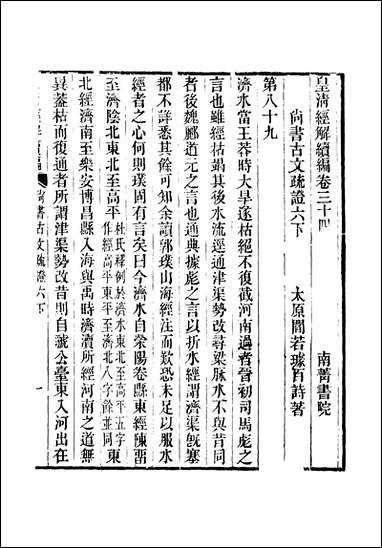 皇清經解續編卷三十四　南菁書院
尚書古文疏證六下　太原閻若璩百詩著
第八十九
濟水當王莽時大旱遂枯絕不復截河南過者晉初司馬彪之
言也雖經枯竭其後水流逕通津渠勢改尋梁脈水不與昔同
者後魏酈道元之言也通典據彪之言以折水經謂濟渠旣塞
都不詳悉其餘可知余讀郭璞山海經注而歎恐未足以服水
經者之心何則璞固有言矣曰今濟水自滎陽卷縣東經陳留
至濟陰北東北至高平杜氏釋例於濟水東北至高平五字作經高平東平至濟北八字餘並同東
北經濟南至樂安博昌縣入海與禹時濟瀆所經河南之道無
異蓋枯而復通者所謂津渠勢改昔則自虢公臺東入河出在
尚書古文疏證六下　一